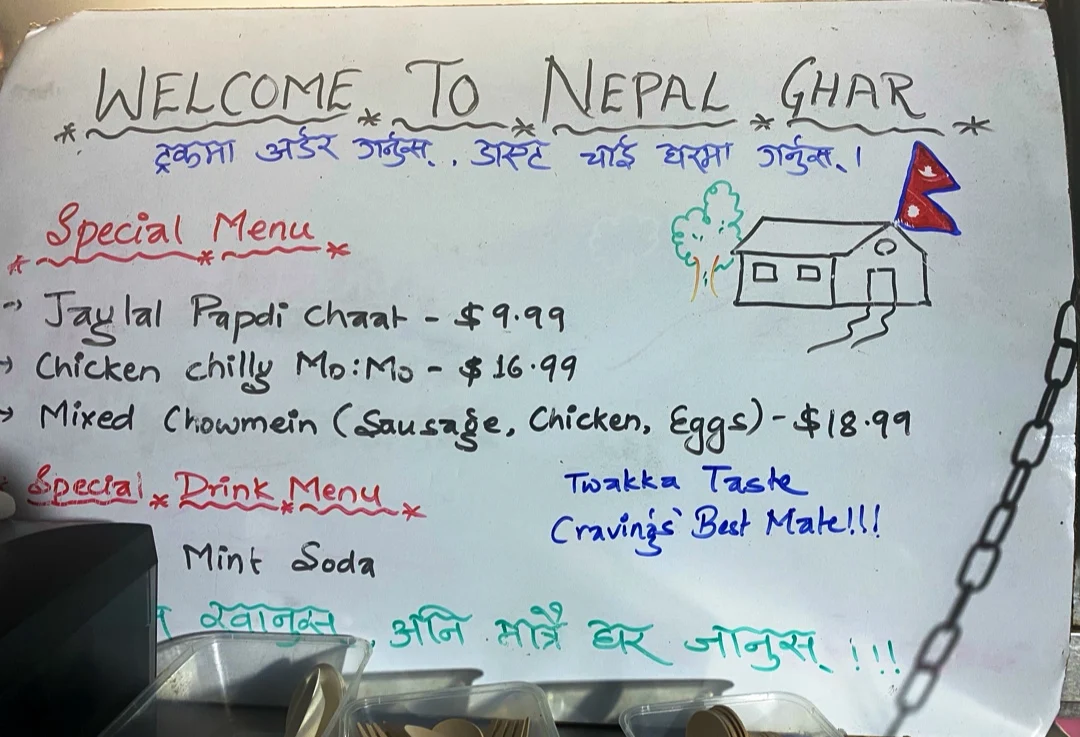 WELCOME TO NEPAL GHAR
ट्रकमा अर्डर गर्नुस्, डास्ट चाँई घरमा गर्नुस्।
Special Menu
→ Jaylal Papdi Chaat - $9.99
→ Chicken chilly Mo:Mo - $16.99
→ Mixed Chowmein (Sausage, Chicken, Eggs) - $18.99
Special Drink Menu
Twakka Taste
Cravings' Best Mate!!!
Mint Soda
खानुस्, अनि मात्रै घर जानुस् !!!